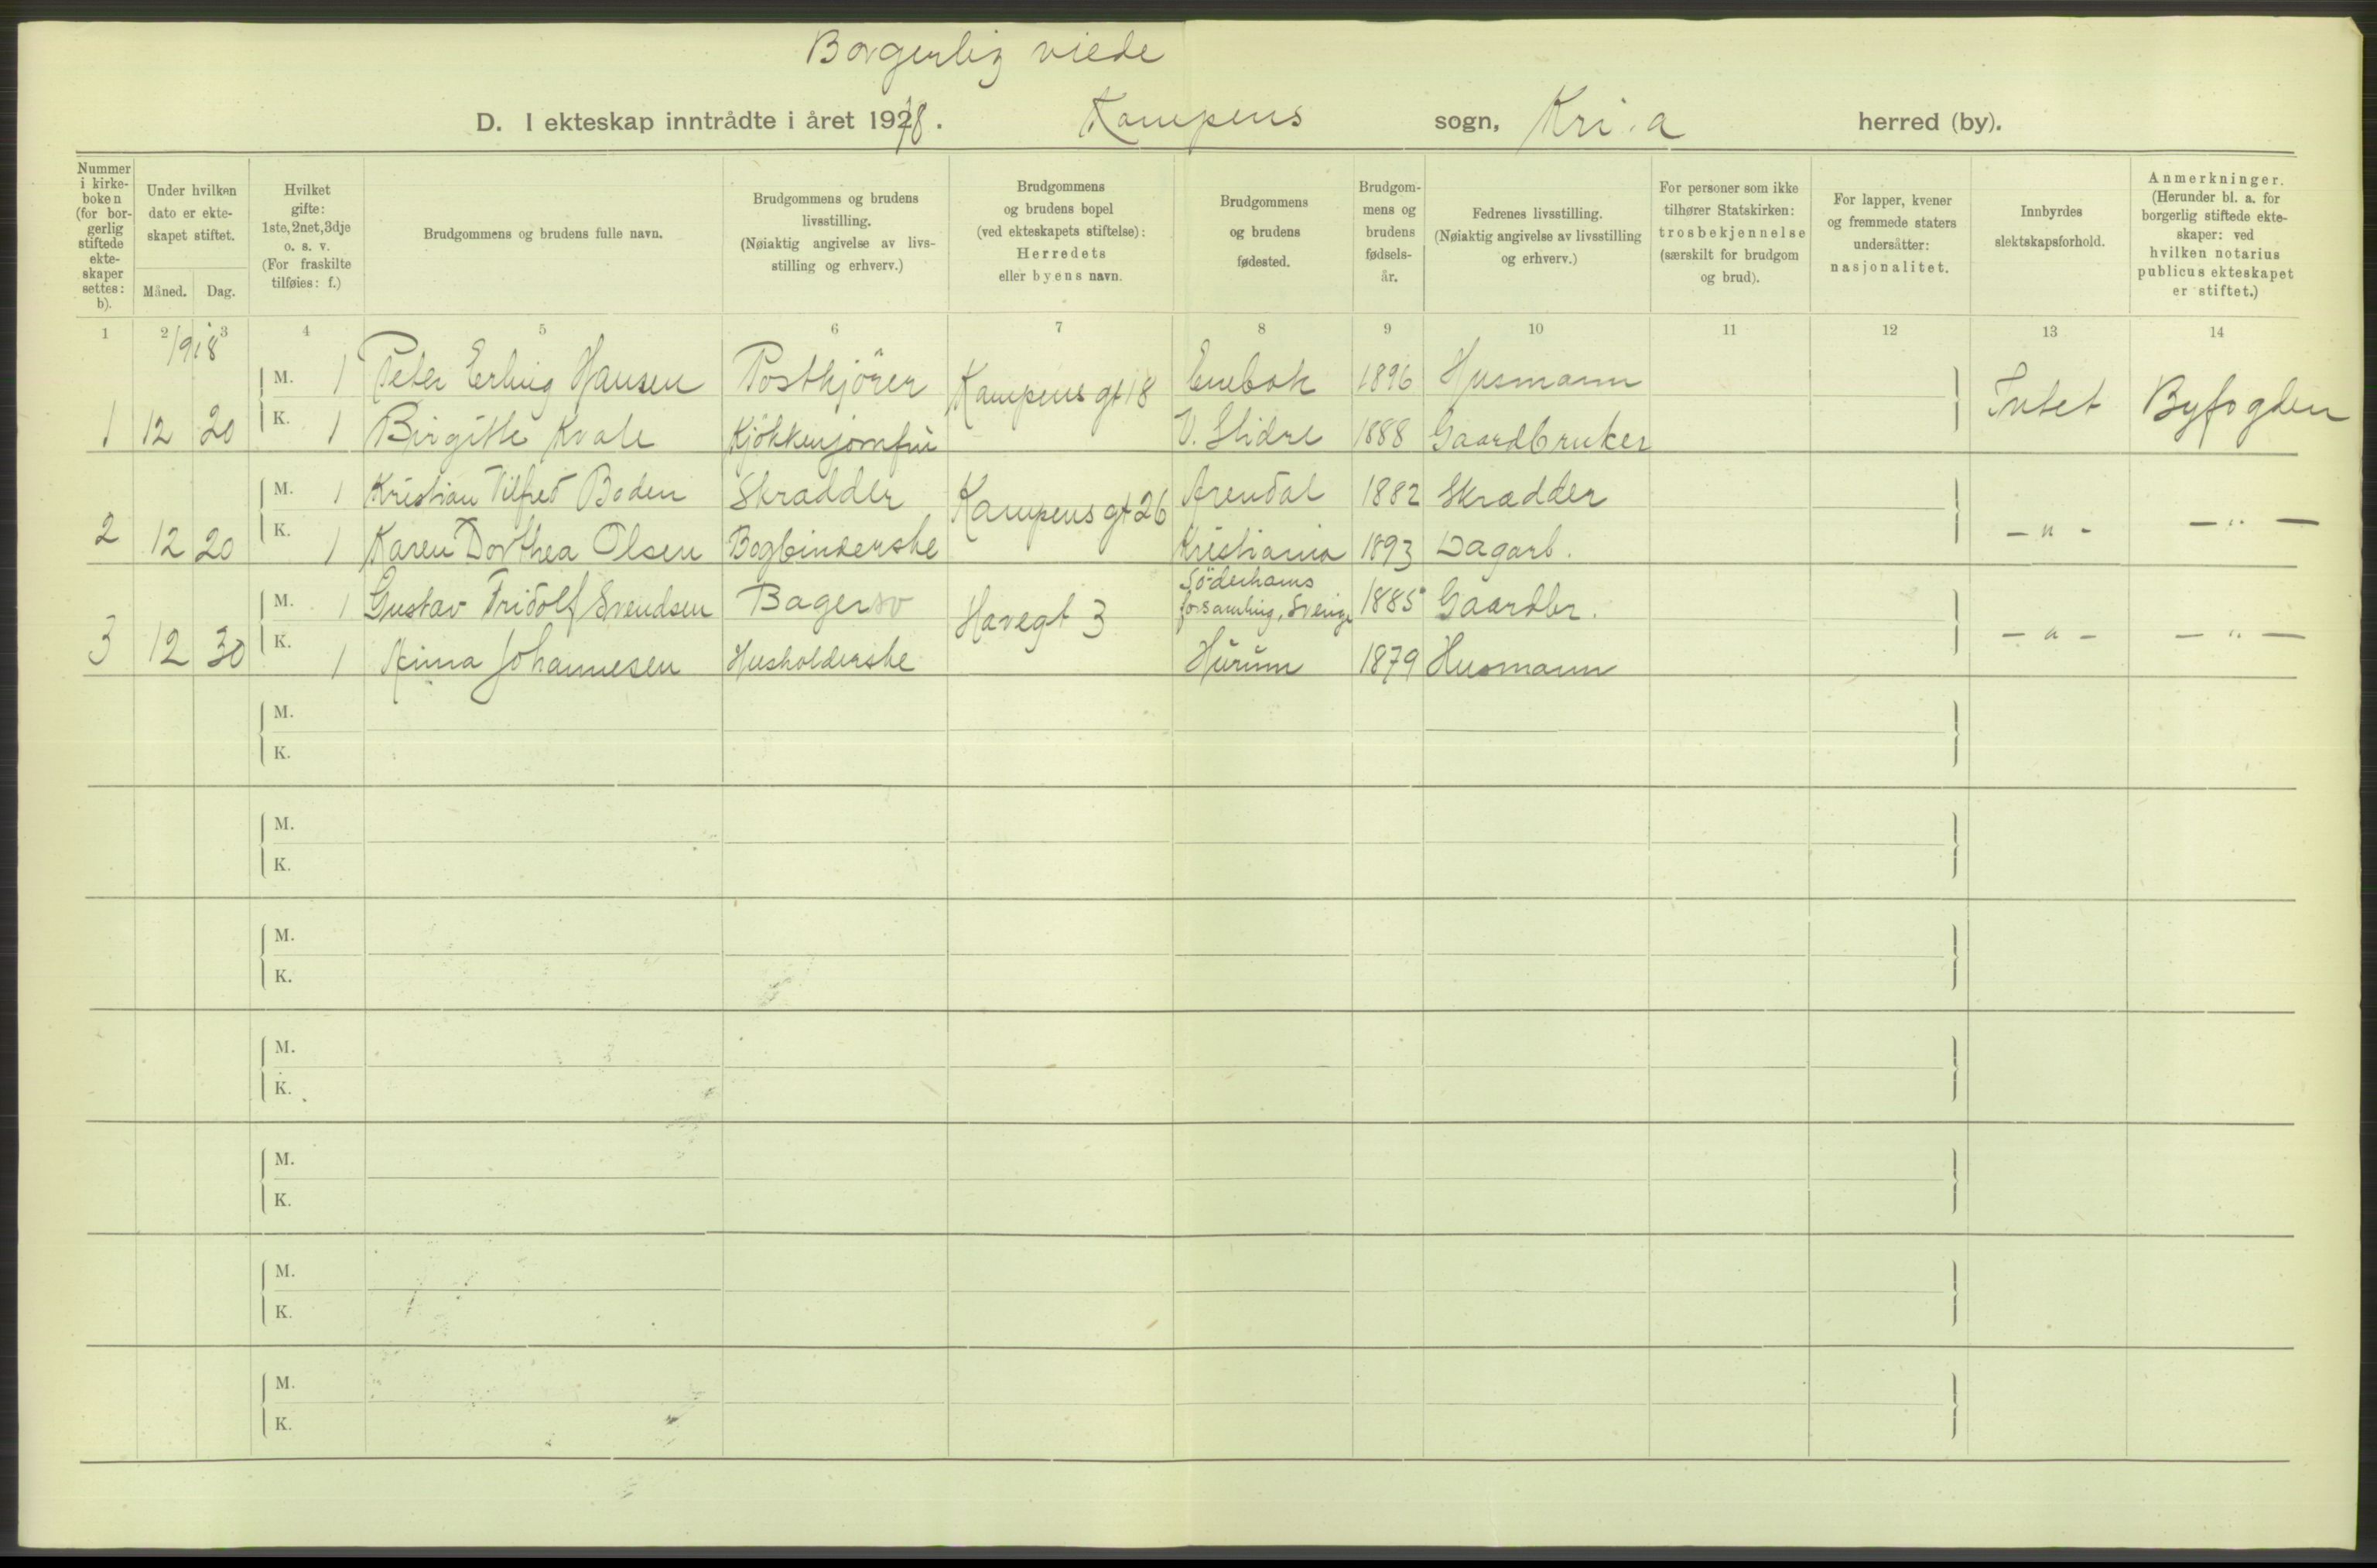 Borgerlig viede
D. I ekteskap inntrådte i året 1918. Kampens sogn, Kri.a herred (by).
Nummer i kirkeboken (for borgerlig stiftede ekteskaper settes: b).
Under hvilken dato er ekteskapet stiftet.
Måned. Dag.
Hvilket gifte: 1ste, 2net, 3dje o. s. v. (For fraskilte tilføies: f.)
Brudgommens og brudens fulle navn.
Brudgommens og brudens livsstilling. (Nøiaktig angivelse av livsstilling og erhverv.)
Brudgommens og brudens bopel (ved ekteskapets stiftelse): Herredets eller byens navn.
Brudgommens og brudens fødested.
Brudgommens og brudens fødselsår.
Fedrenes livsstilling. (Nøiaktig angivelse av livsstilling og erhverv.)
For personer som ikke tilhører Statskirken: trosbekjennelse (særskilt for brudgom og brud).
For lapper, kvener og fremmede staters undersåtter: nasjonalitet.
Innbyrdes slektskapsforhold.
Anmerkninger. (Herunder bl. a. for borgerlig stiftede ekteskaper: ved hvilken notarius publicus ekteskapet er stiftet.)
1 2 3 4 5 6 7 8 9 10 11 12 13 14
1918
M. 1 Peter Erling Hansen Postkjörer Kampens gt 18 Enebak 1896 Husmann Intet Byfogden
1 12 20 K. 1 Birgitte Kvale Kjökkenjomfru V. Slidre 1888 Gaardbruker
M. 1 Kristian Tilfred Boden Skradder Kampens gt 26 Arendal 1882 Skradder
2 12 20 K. 1 Karen Dorthea Olsen Bogbinderske Kristiania 1893 Dagarb. - " - - " -
M. 1 Gustav Fridolf Svendsen Bagersv Havegt 3 Söderhams forsamling, Sverige 1885 Gaardbr.
3 12 30 K. 1 Johannesen Husholderske Hurum 1879 Husmann - " - - " -
M.
K.
M.
K.
M.
K.
M.
K.
M.
K.
M.
K.
M.
K.